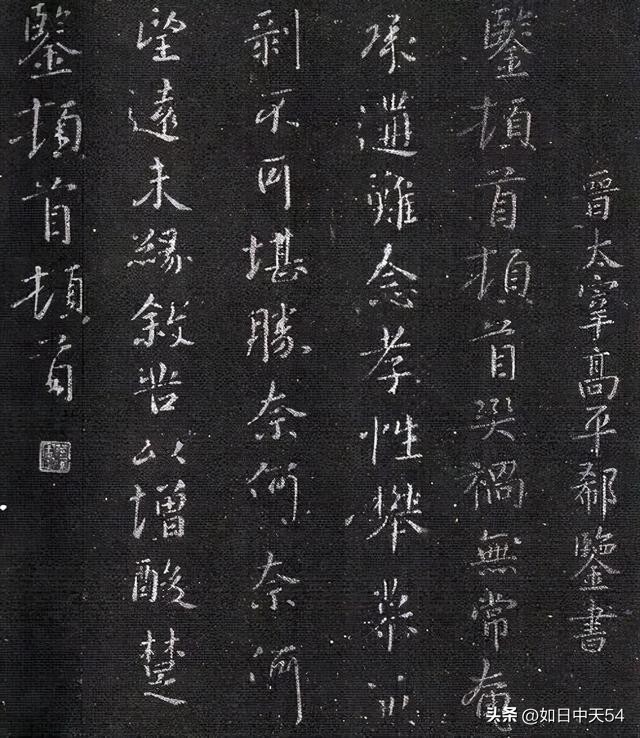 晉太宰高平郗鑒書
鑒頓首頓首災禍無常奄
承遘難念孝性攀慕
剝不可堪勝奈何奈何
望遠未緣敘苦以增酸楚
鑒頓首頓首
头条 @如日中天54